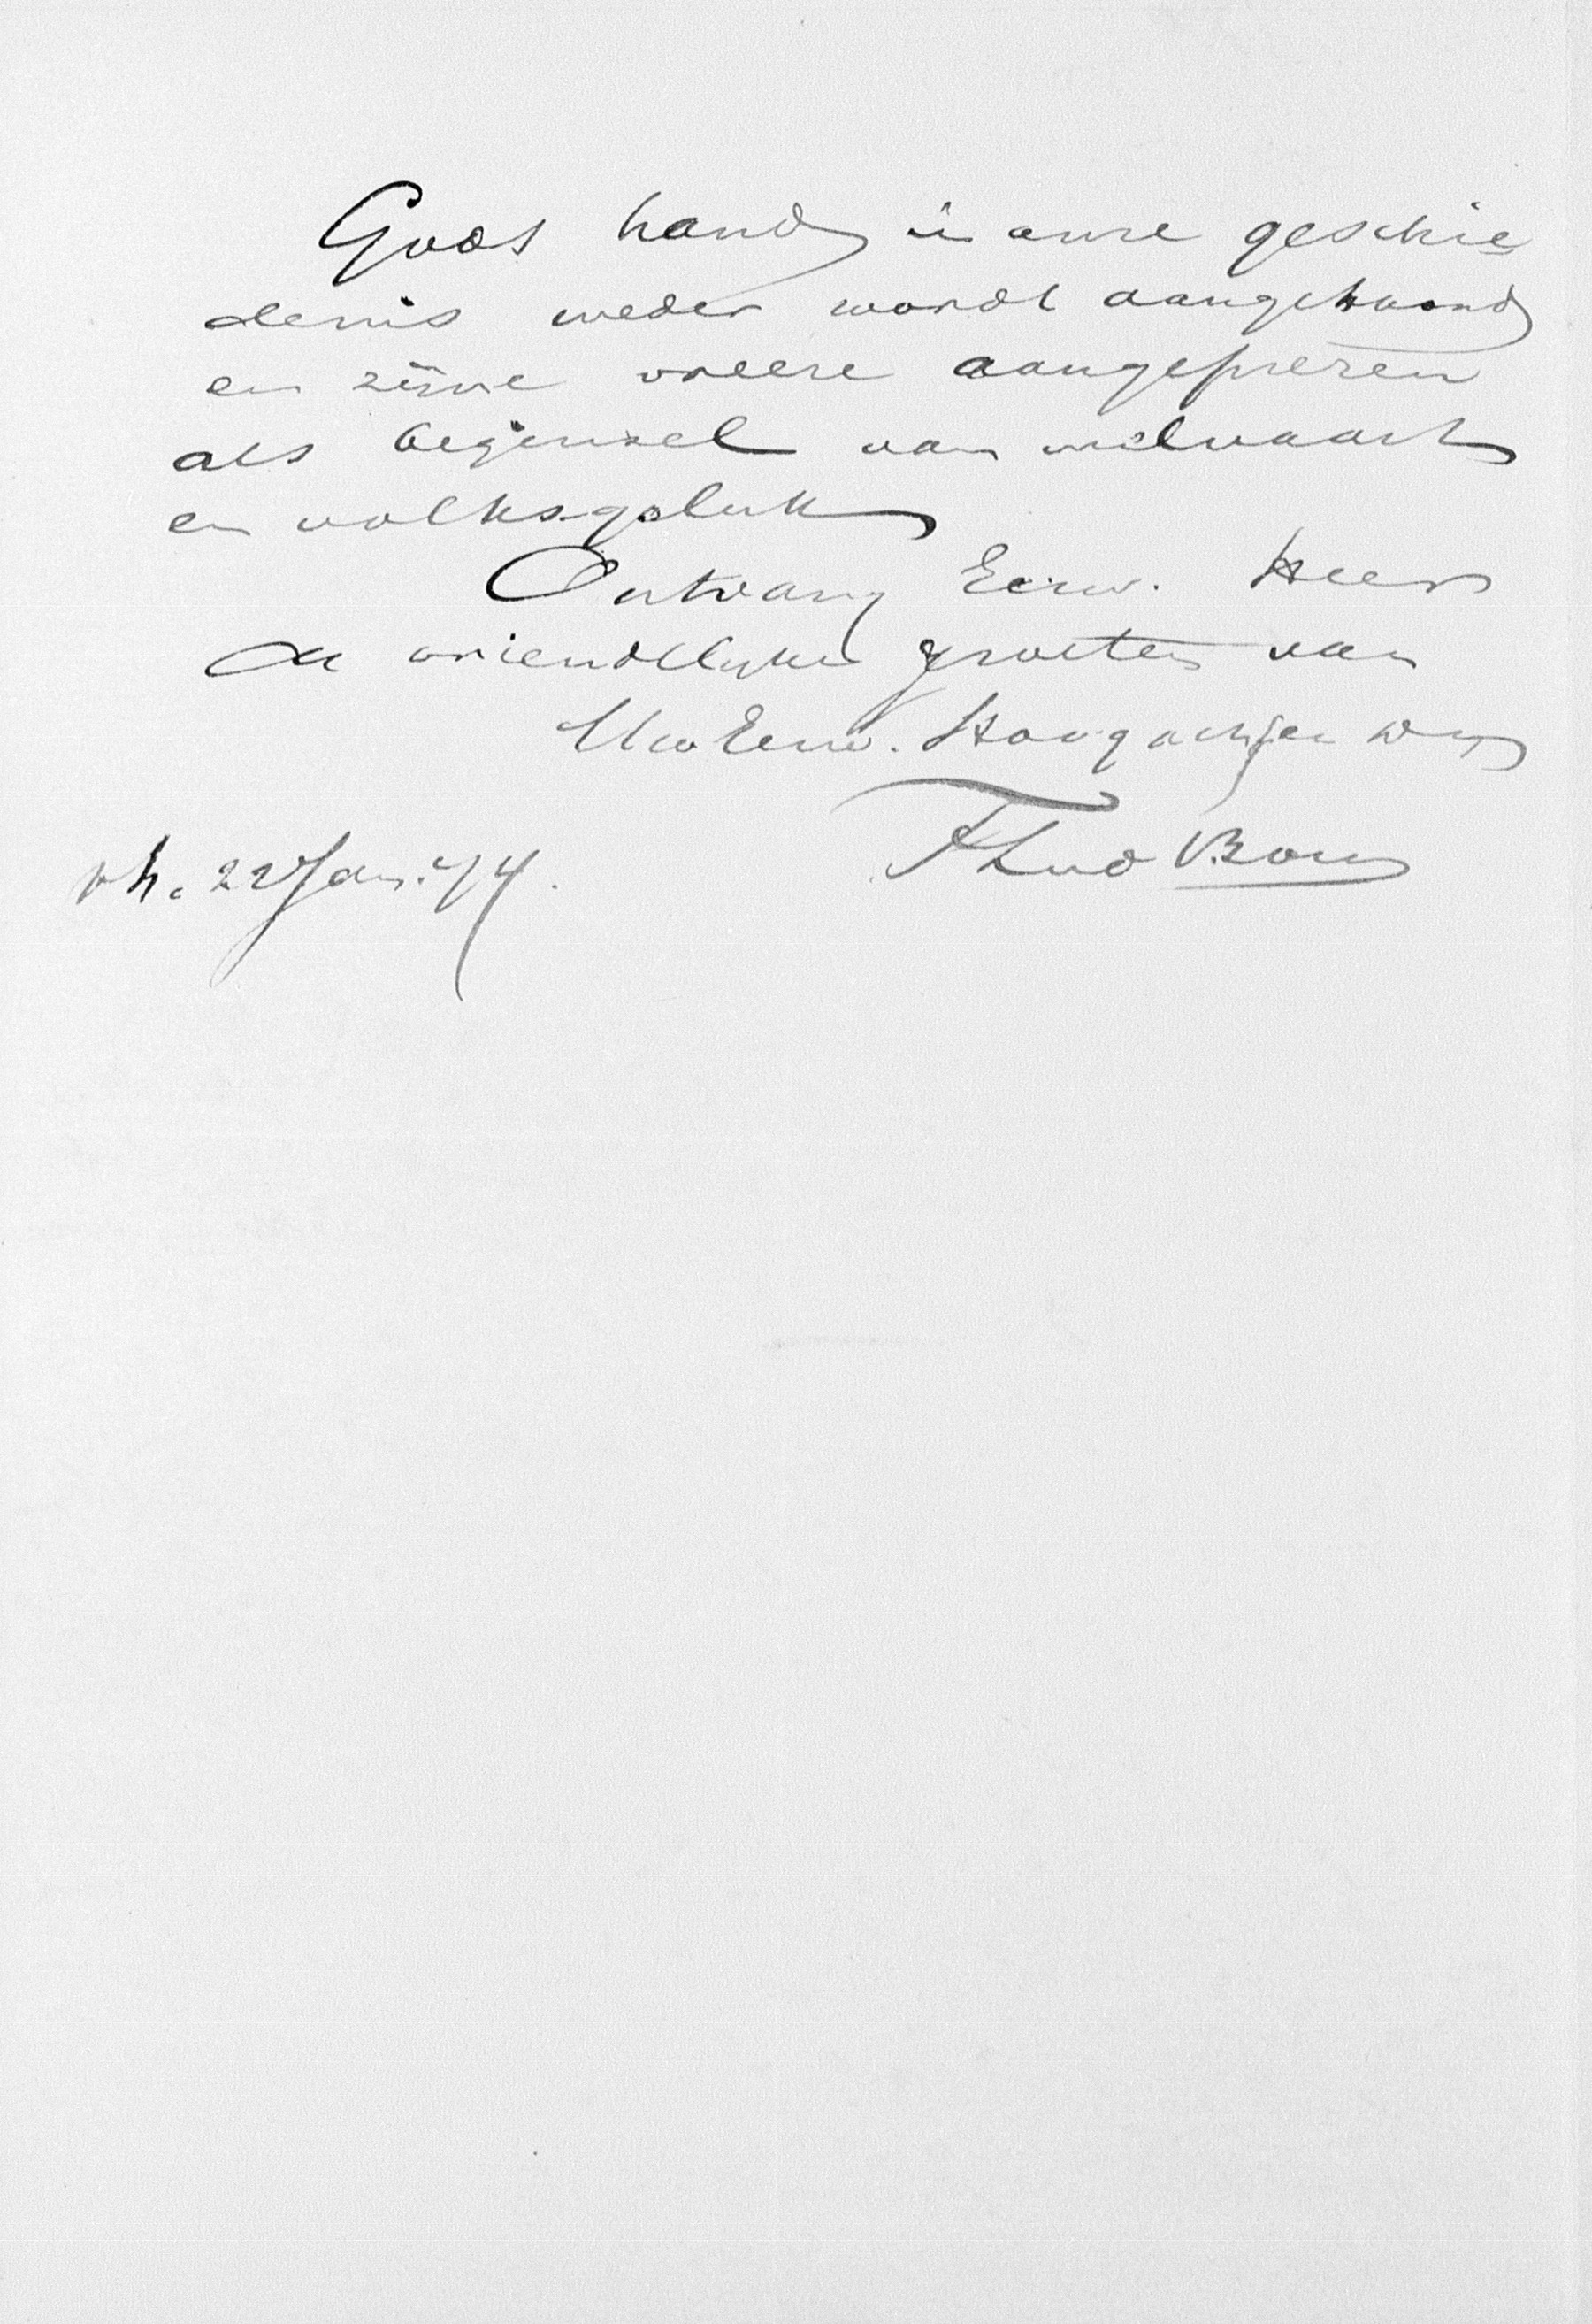 Gods hand in onze geschie
denis weder wordt aangetoond
en zijne vreeze aangeprezen
als beginsel van welvaart
en volksgeluk
Ontvang Eerw. Heer
de vriendelijke groeten van
UwEerw. Hoogachtenden
FLud Bon
22 Jan. 74.